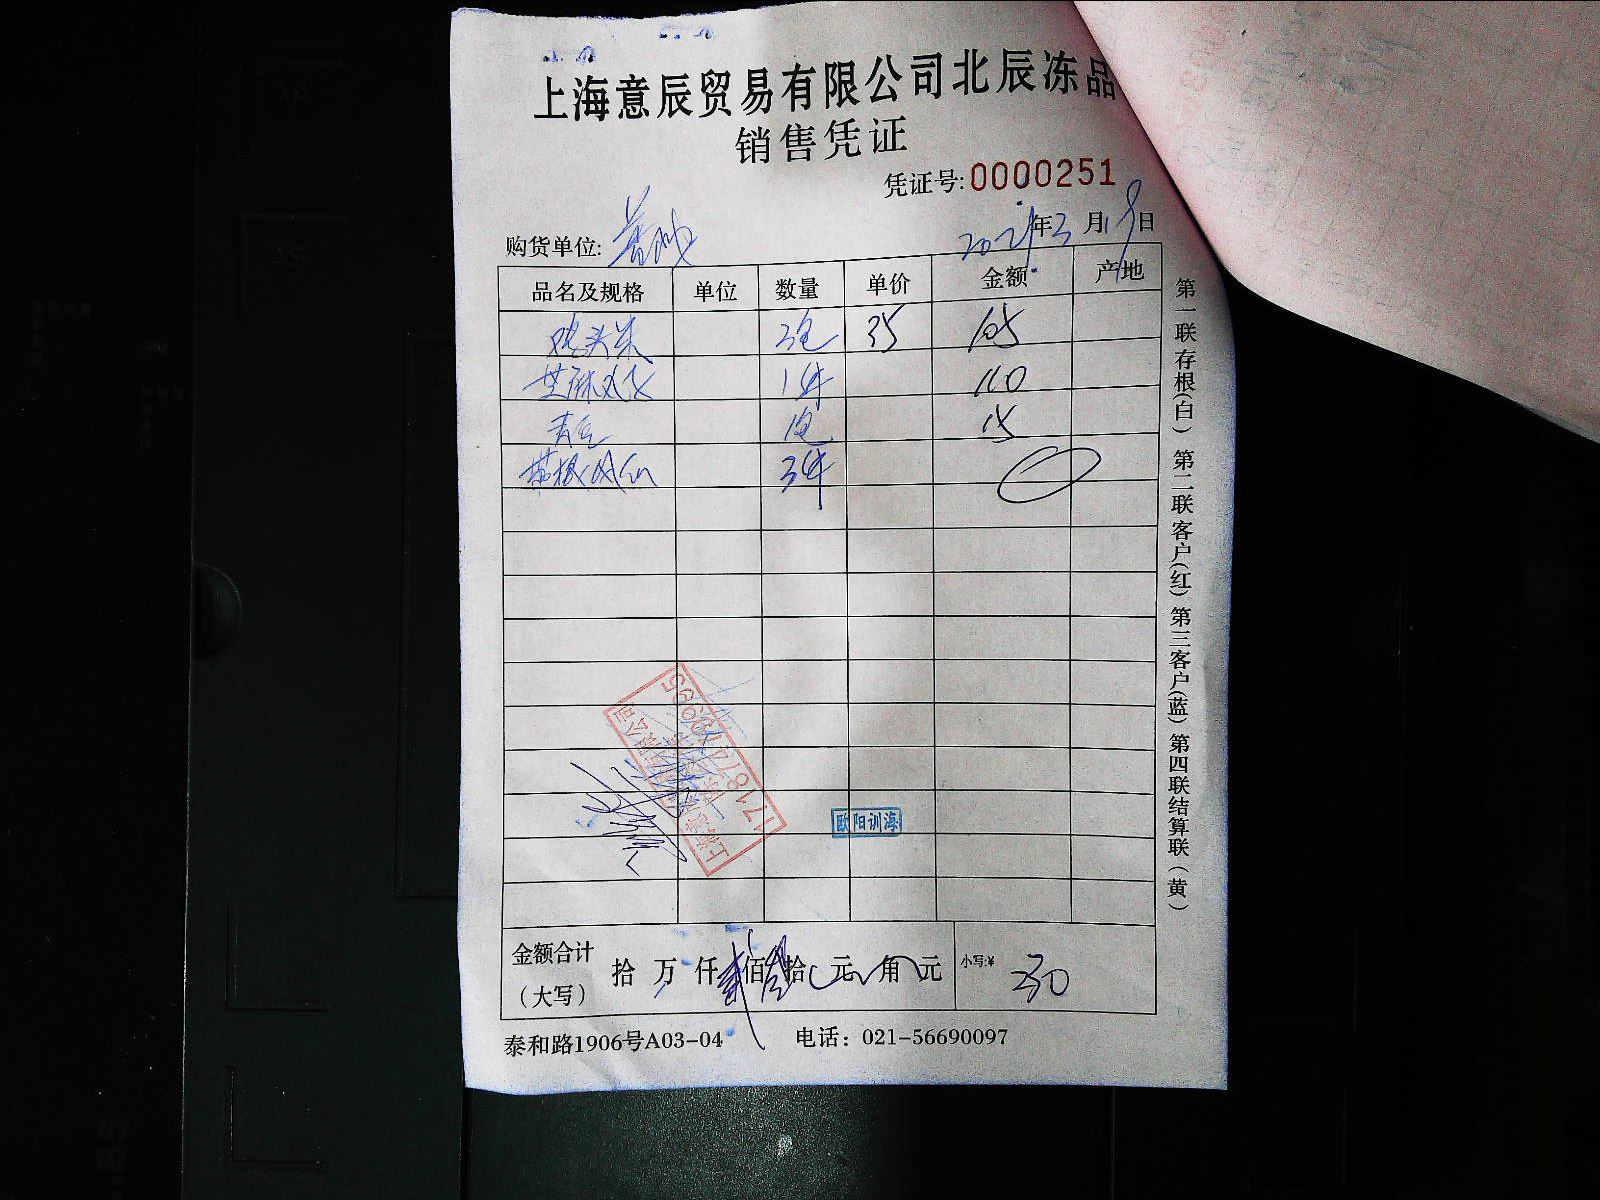 上海意辰贸易有限公司北辰冻品
销售凭证
凭证号:0000251
年3月19日
购货单位:
品名及规格 单位 数量 单价 金额 产地
鸡头米 3包 35 105
芝麻 1件 110
青豆 1包 15
带根 3件
17187419995
欧阳训海
金额合计(大写) 拾 万 仟 贰 佰 叁 拾 元 角 元 小写:¥ 230
泰和路1906号A03-04 电话：021-56690097
第一联存根(白) 第二联客户(红) 第三客户(蓝) 第四联结算联(黄)